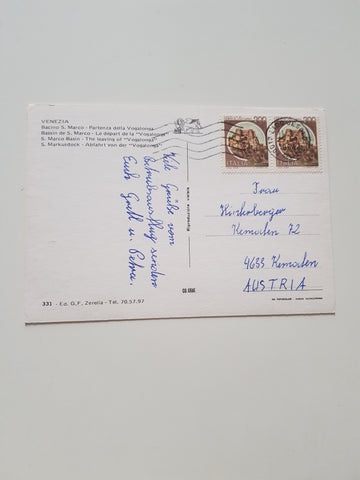 VENEZIA
Bacino S. Marco - Partenza della "Vogalonga"
Bassin de S. Marco - Le départ de la "Vogalonga"
S. Marco Basin - The leaving of "Vogalonga"
S. Markusdock - Abfahrt von der "Vogalonga"
Viele Grüße vom
Schulausflug senden
Euch Gretl u. Petra.
331 - Ed. G.F. Zerella - Tel. 70.57.97
Riproduzione vietata
200
200
ITALIA
ITALIA
Frau
Kematen 72
4633 Kematen
AUSTRIA